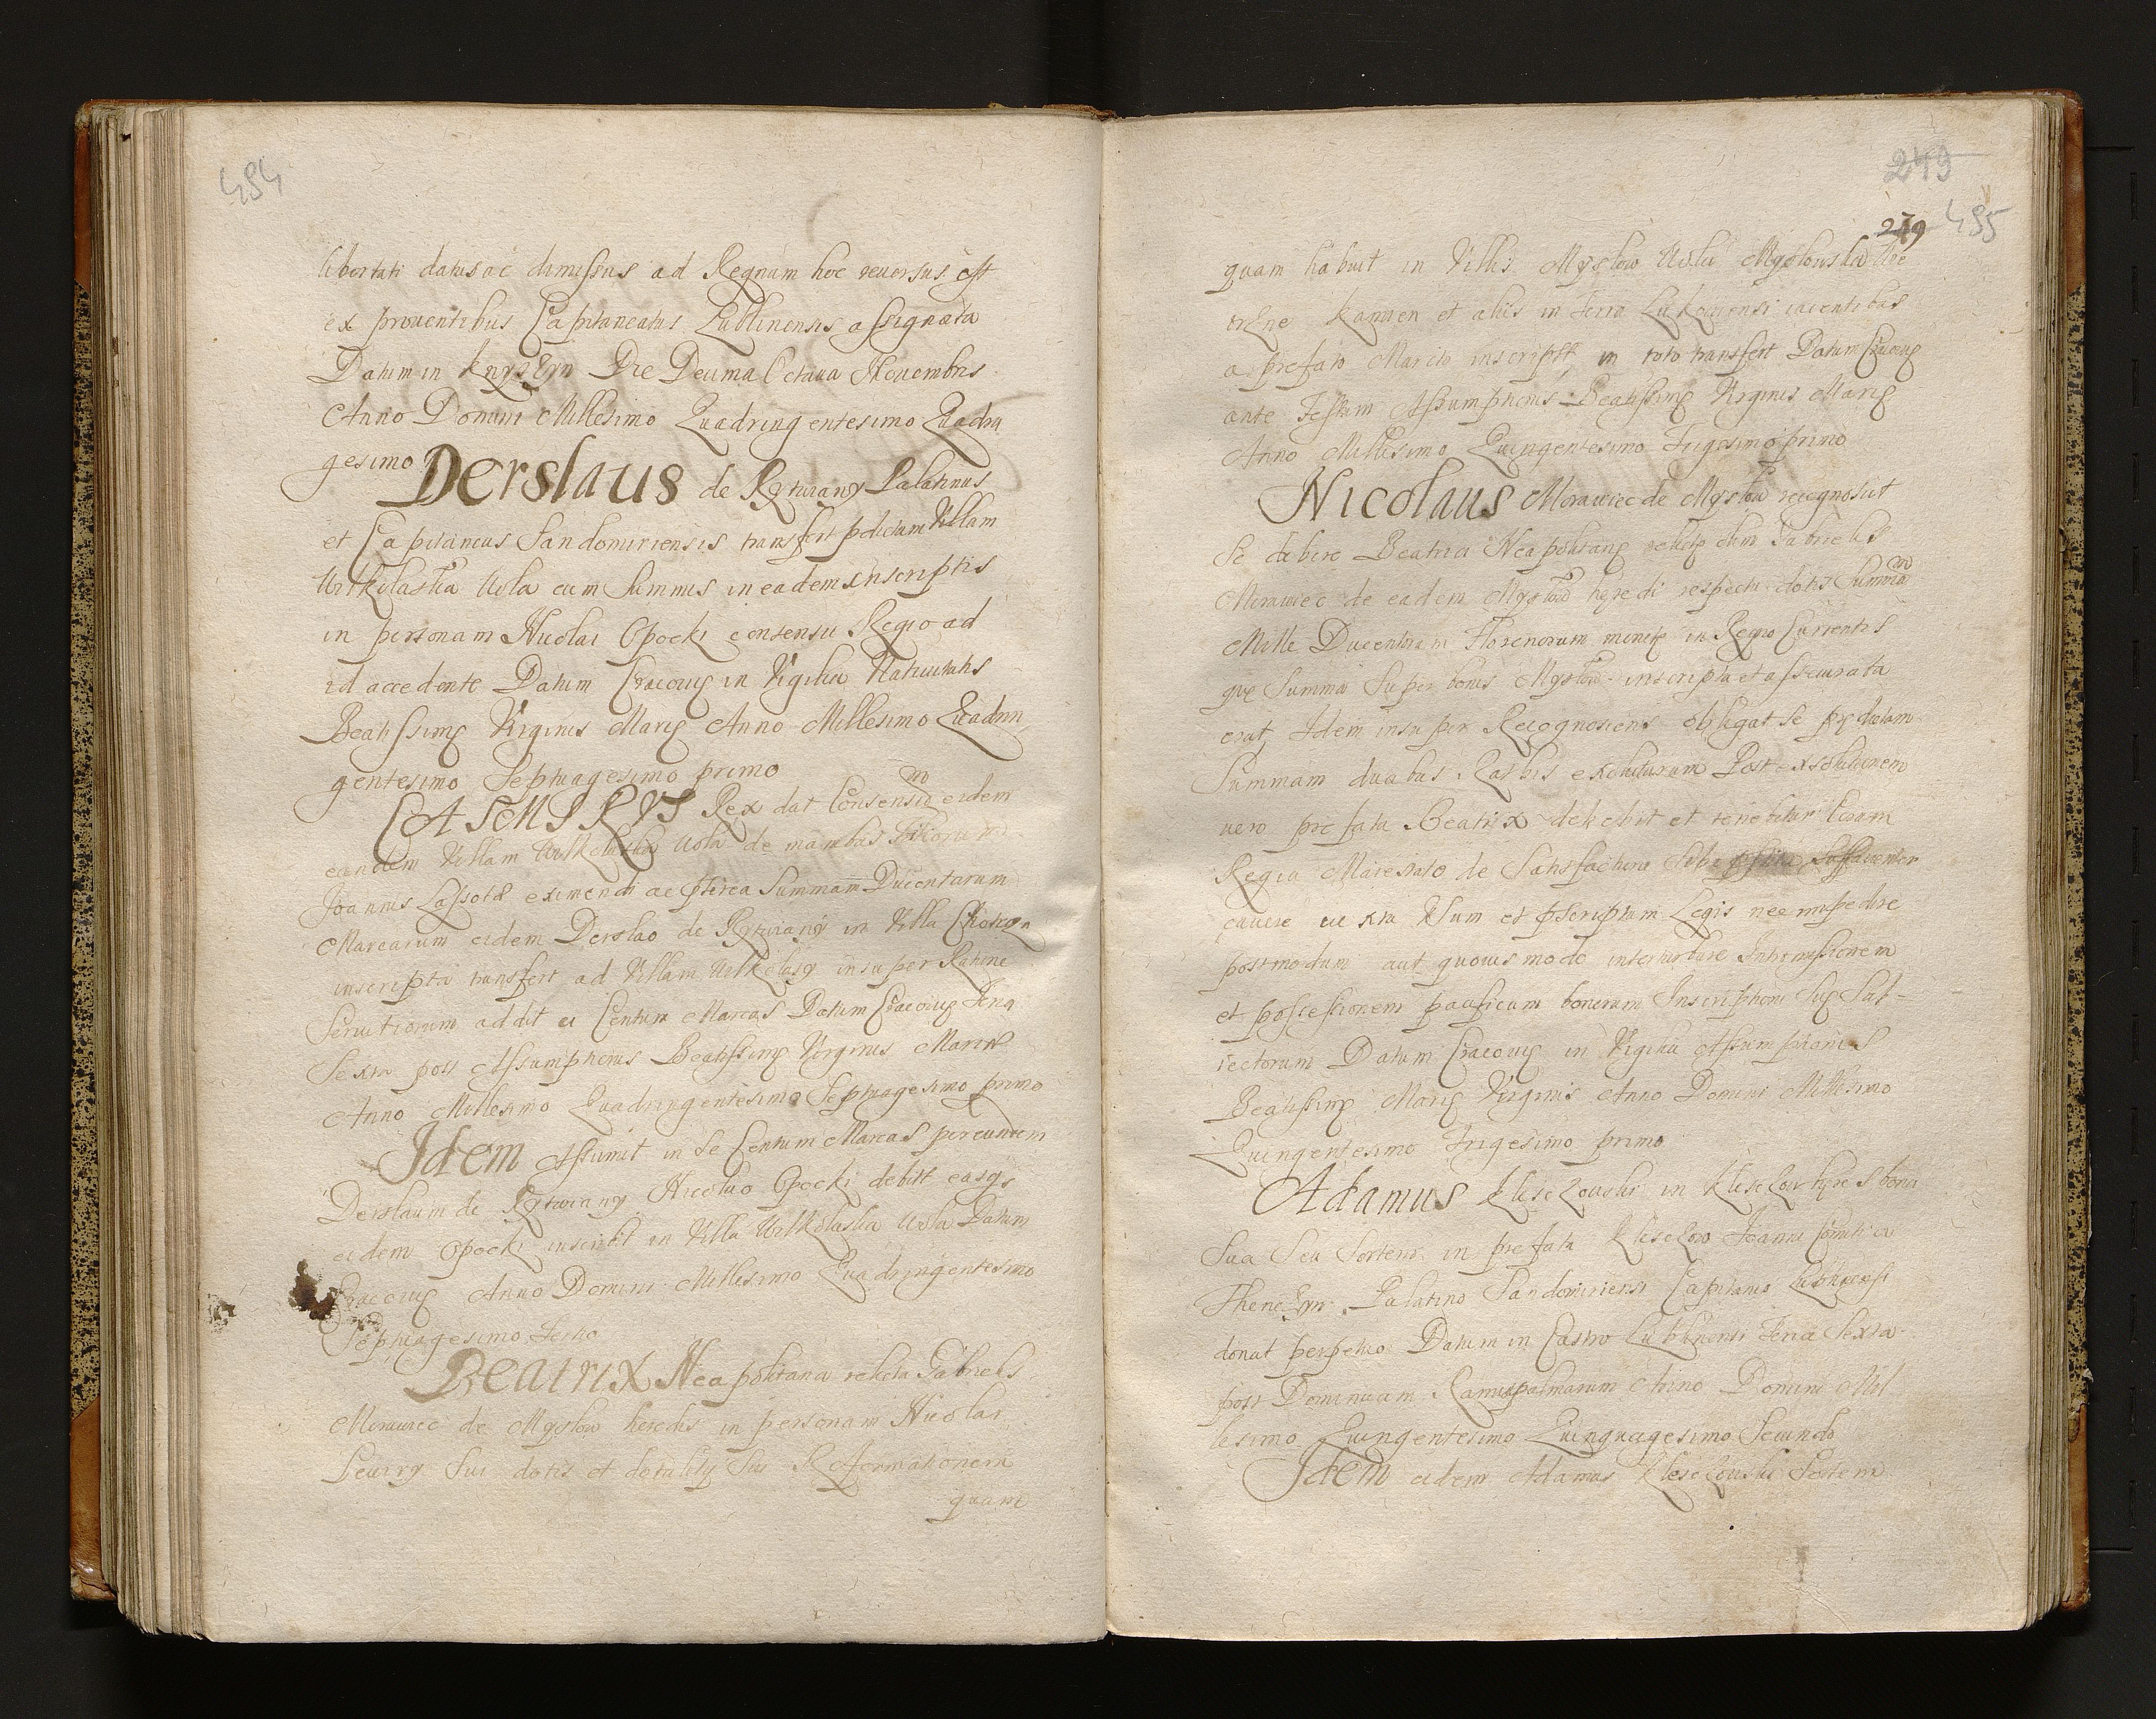 494
libertati datus ac dimissus ad Regnum hoc reuersus est
ex prouentibus Capitaneatus Lublinensis assignata
Datum in Knyszyn Die Decima Octaua Nouembris
Anno Domini Millesimo Quadringentesimo Quadra
gesimo
Derslaus de Rytwiany Palatinus
et Capitaneus Sandomiriensis transfert pdictam Villam
Witkolaska Wola cum Summis in eadem inscriptis
in personam Nicolai Opocki consensu Regio ad
id accedente Datum Cracouię in Vigilia Natiuitatis
Beatissimę Virginis Marię Anno Millesimo Quadrin
gentesimo Septuagesimo primo
CASIMIRVS Rex dat Consensum eidem
eandem Villam Witkolaska Wola de manibus
Joannis Lassota eximendi ac pterea Summam Ducentarum
Marcarum eidem Derslao de Rytwiany in Villa
inscripta transfert ad Villam insuper Ratione
Seruitiorum addit ei Centum Marcas Datum Cracouię Feria
Sexta post Assumptionis Beatissimę Virginis Marię
Anno Millesimo Quadringentesimo Septuagesimo primo
Idem Assumit in se Centum Marcas per eundem
Derslaum de Rytwiany Nicolao Opocki debitt easqs
eidem Opocki inscribit in Villa Witkolaska Wola Datum
Cracouię Anno Domini Millesimo Quadringentesimo
Septuagesimo Tertio
Beatrix Neapolitana relicta Gabrielis
Morawiec de Mysłow heredis in personam Nicolai
Leuiry Sui dotis et dotality Sui Reformationem
quam
249
249 495
quam habuit in Villis Mysłow Wola Mysłowska
Kamien et aliis in Terra Lukouiensi iacentibus
a prefato Marito inscriptt in toto transfert Datum Cracouię
ante Festum Assumptionis Beatissimę Virginis Marię
Anno Millesimo Quingentesimo Trigesimo primo
Nicolaus Morawiec de Mysłow recognoscit
Se debere Beatrici Neapolitanę relictę olim Gabrielis
Morawiec de eadem Mysłow hęredi respectu dotis Summam
Mille Ducentorum Florenorum monetę in Regno Currentis
quę Summa Super bonis Mysłow inscripta et assecurata
erat, Idem insuper Recognoscens obligat se prędictam
Summam duabus Ratbis exoluturum Post exsolutionem
uero prefata Beatrix debebit et tenebitur Coram
Regia Maiestate de Satisfactione Sibi Sufficienter
cauere iuxta Vsum et pscriptum Legis nec impedire
postmodum aut quouismodo interturbare Intromissionem
et possessionem pacificam bonorum Inscriptioni Suę Sub-
iectorum Datum Cracouię in Vigilia Assumptionis
Beatissimę Marię Virginis Anno Domini Millesimo
Quingentesimo Trigesimo primo
Adamus Klesczowski in Klesczow hęres bona
Sua Seu Sortem in prefata Klesczow Joanni Comiti a
Thenczyn Palatino Sandomiriensi Capitaneo Lublinensi
donat perpetuo Datum in Castro Lublinensi Feria Sexta
post Dominicam Ramispalmarum Anno Domini Mil
lesimo Quingentesimo Quinquagesimo Secundo
Idem eidem Adamus Klesczowski Sortem